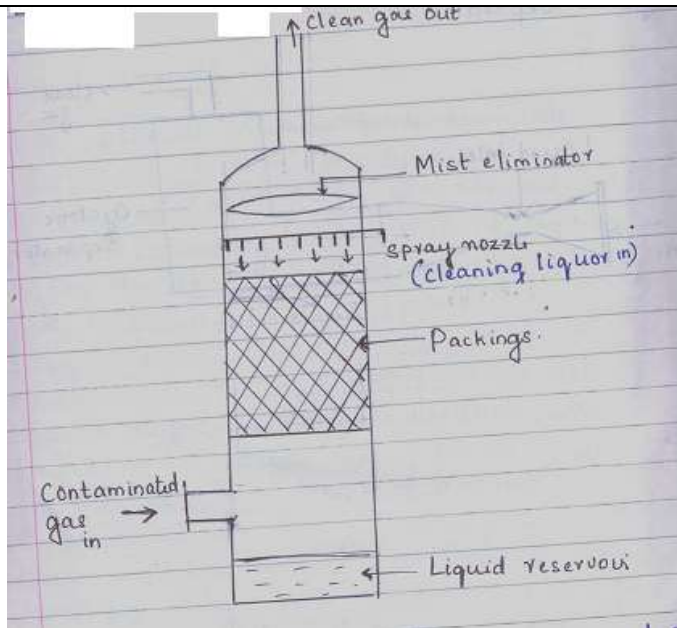 clean gas out
Mist eliminator
spray nozzle
(cleaning liquor in)
Packings.
Contaminated
gas
in
Liquid reservoir